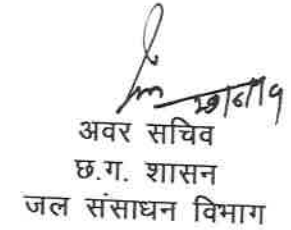 अवर सचिव
छ.ग. शासन
जल संसाधन विभाग